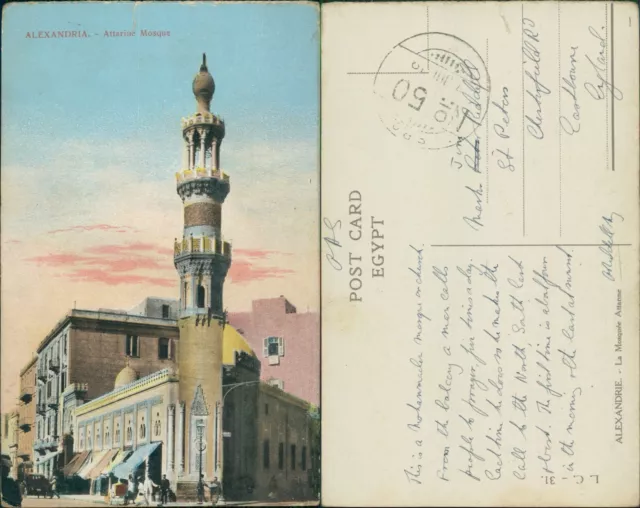 ALEXANDRIA. - Attarine Mosque
POST CARD
EGYPT
ALEXANDRIE. - La Mosquée Attarine
OAS
Jim
St Peters
Chesterfield Rd
Eastbourne
England.
This is a Mohammedan mosque or church.
From the balcony a man calls
people to prayer, five times a day.
Each time he does so he makes the
call to the North South East
& West. The first time is at
in the morning, the last at